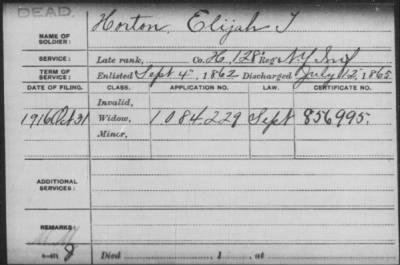 DEAD.
NAME OF SOLDIER: Horton, Elijah T
SERVICE: Late rank, Co. H, 128 Reg't NY Inf
TERM OF SERVICE: Enlisted Sept 4", 1862 Discharged July 12", 1865.
DATE OF FILING. CLASS. APPLICATION NO. LAW. CERTIFICATE NO.
Invalid,
1916 Oct 31 Widow, 1084.229 Sept 856995.
Minor,
ADDITIONAL SERVICES:
REMARKS:
Died , 1 , at